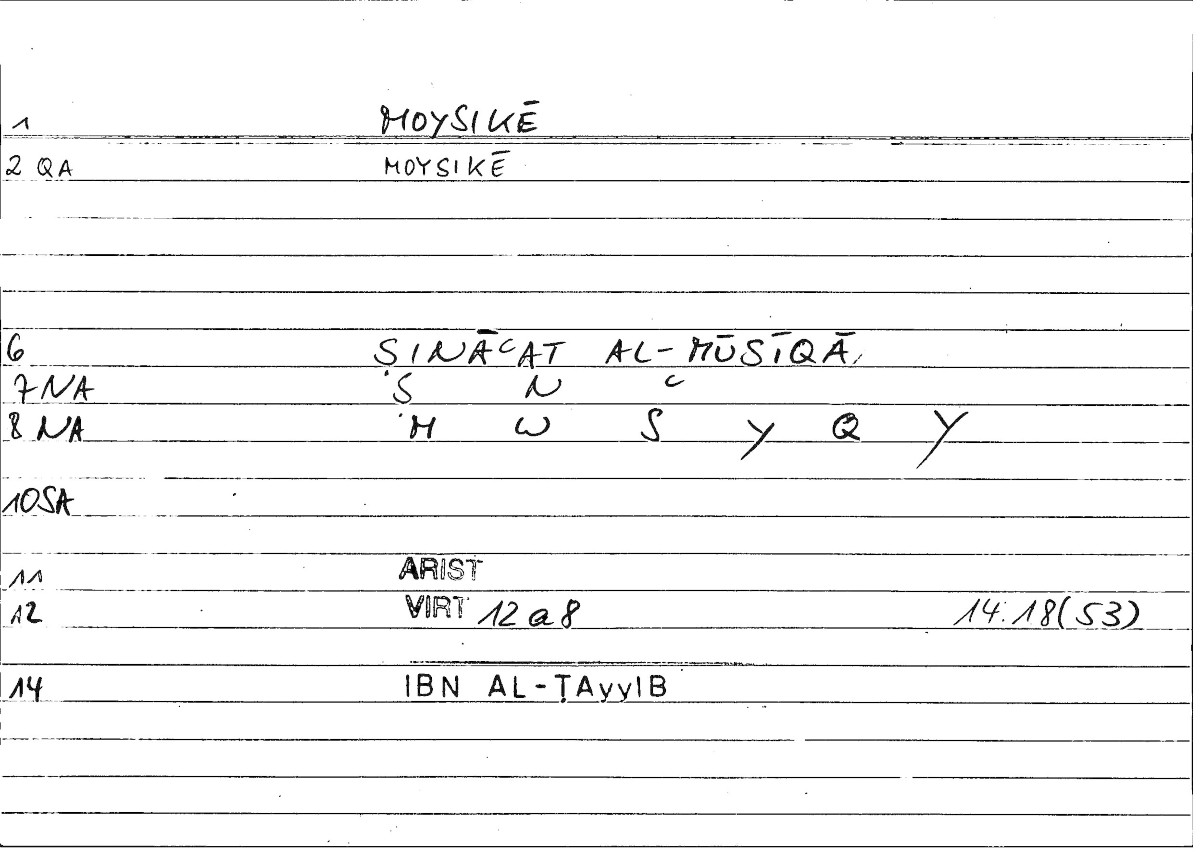 1 MOYSIKĒ
2 QA MOYSIKĒ
6 ṢINĀᶜAT AL-MŪSĪQĀ
7 NA Ṣ N ᶜ
8 NA M W S Y Q Y
10 SA
11 ARIST
12 VIRT 12 a 8 14.18(53)
14 IBN AL-ṬAyyIB